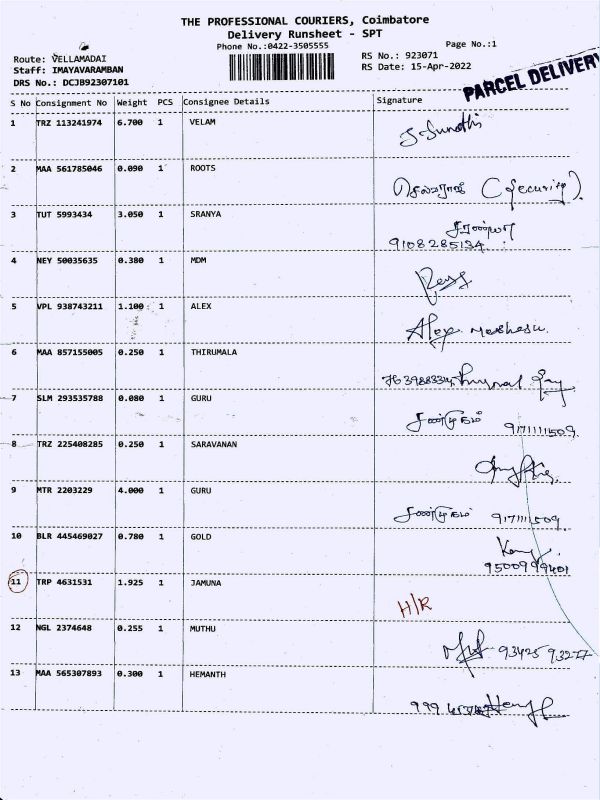 THE PROFESSIONAL COURIERS, Coimbatore
Delivery Runsheet - SPT
Phone No.:0422-3505555
Page No.:1
Route: VELLAMADAI
RS No.: 923071
Staff: IMAYAVARAMBAN
RS Date: 15-Apr-2022
DRS No.: DCJB92307101
PARCEL DELIVERY
S No Consignment No Weight PCS Consignee Details Signature
1 TRZ 113241974 6.700 1 VELAM
2 MAA 561785046 0.090 1 ROOTS செல்வராஜ் (Security).
3 TUT 5993434 3.050 1 SRANYA சரண்யா
9108285134
4 NEY 50035635 0.380 1 MDM
5 VPL 938743211 1.100 1 ALEX Alex
6 MAA 857155005 0.250 1 THIRUMALA
7 SLM 293535788 0.080 1 GURU சண்முகம் 9171111509.
8 TRZ 225408285 0.250 1 SARAVANAN
9 MTR 2203229 4.000 1 GURU சண்முகம் 9171111509.
10 BLR 445469027 0.780 1 GOLD
9500999401
11 TRP 4631531 1.925 1 JAMUNA H/R
12 NGL 2374648 0.255 1 MUTHU 93425 93277
13 MAA 565307893 0.300 1 HEMANTH